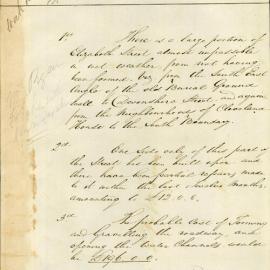 1st There is a large portion of
Elizabeth Street almost impassable
in wet weather from not having
been formed, viz from the South East
Angle of the old Burial Ground
wall to Devonshire Street, and again
from the Neighbourhood of Cleveland
House to the South Boundary.
2nd One Side only of this part of
the Street has been built upon and
there have been partial repairs made
to it within the last Months
amounting to £12.0.0.
3rd The probable Cost of Forming
and Gravelling the roadway, and
opening the Water Channels would
be £196.0.0